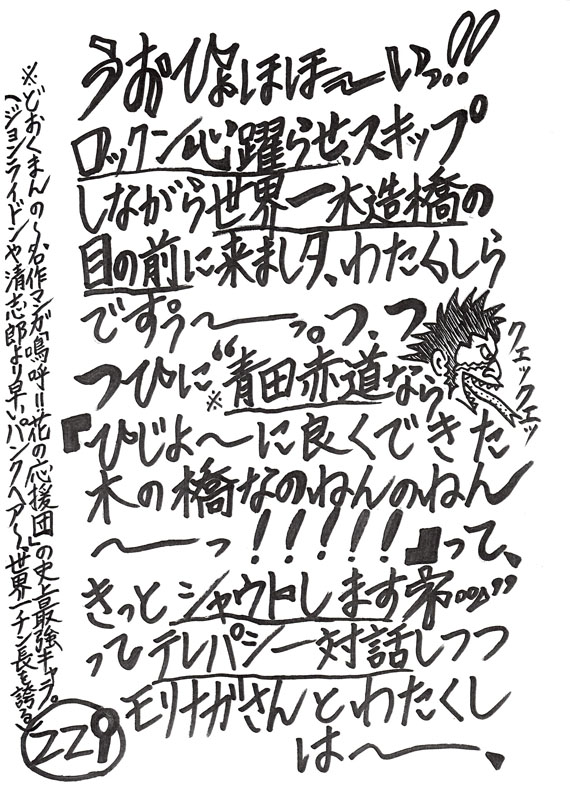 うおひょほほほ〜いっ!!
ロックン心躍らせ、スキップ
しながら世界一木造橋の
目の前に来ました、わたくしら
ですぅ〜ーっ。つ、つ
つひに“青田赤道なら
※
クェックエッ
『ひじょ〜に良くできた
木の橋なのねんのねん
〜ーっ!!!!!!』って、
きっとシャウトします
ってテレパシー対話しつつ
モリナガさんとわたくし
は〜ー、
※どおくまんの〜名作マンガ「嗚呼!!花の応援団」の史上最強キャラ。
(ジョンライドンや清志郎より早いパンクヘアー〜、世界一チン長を誇る)
229